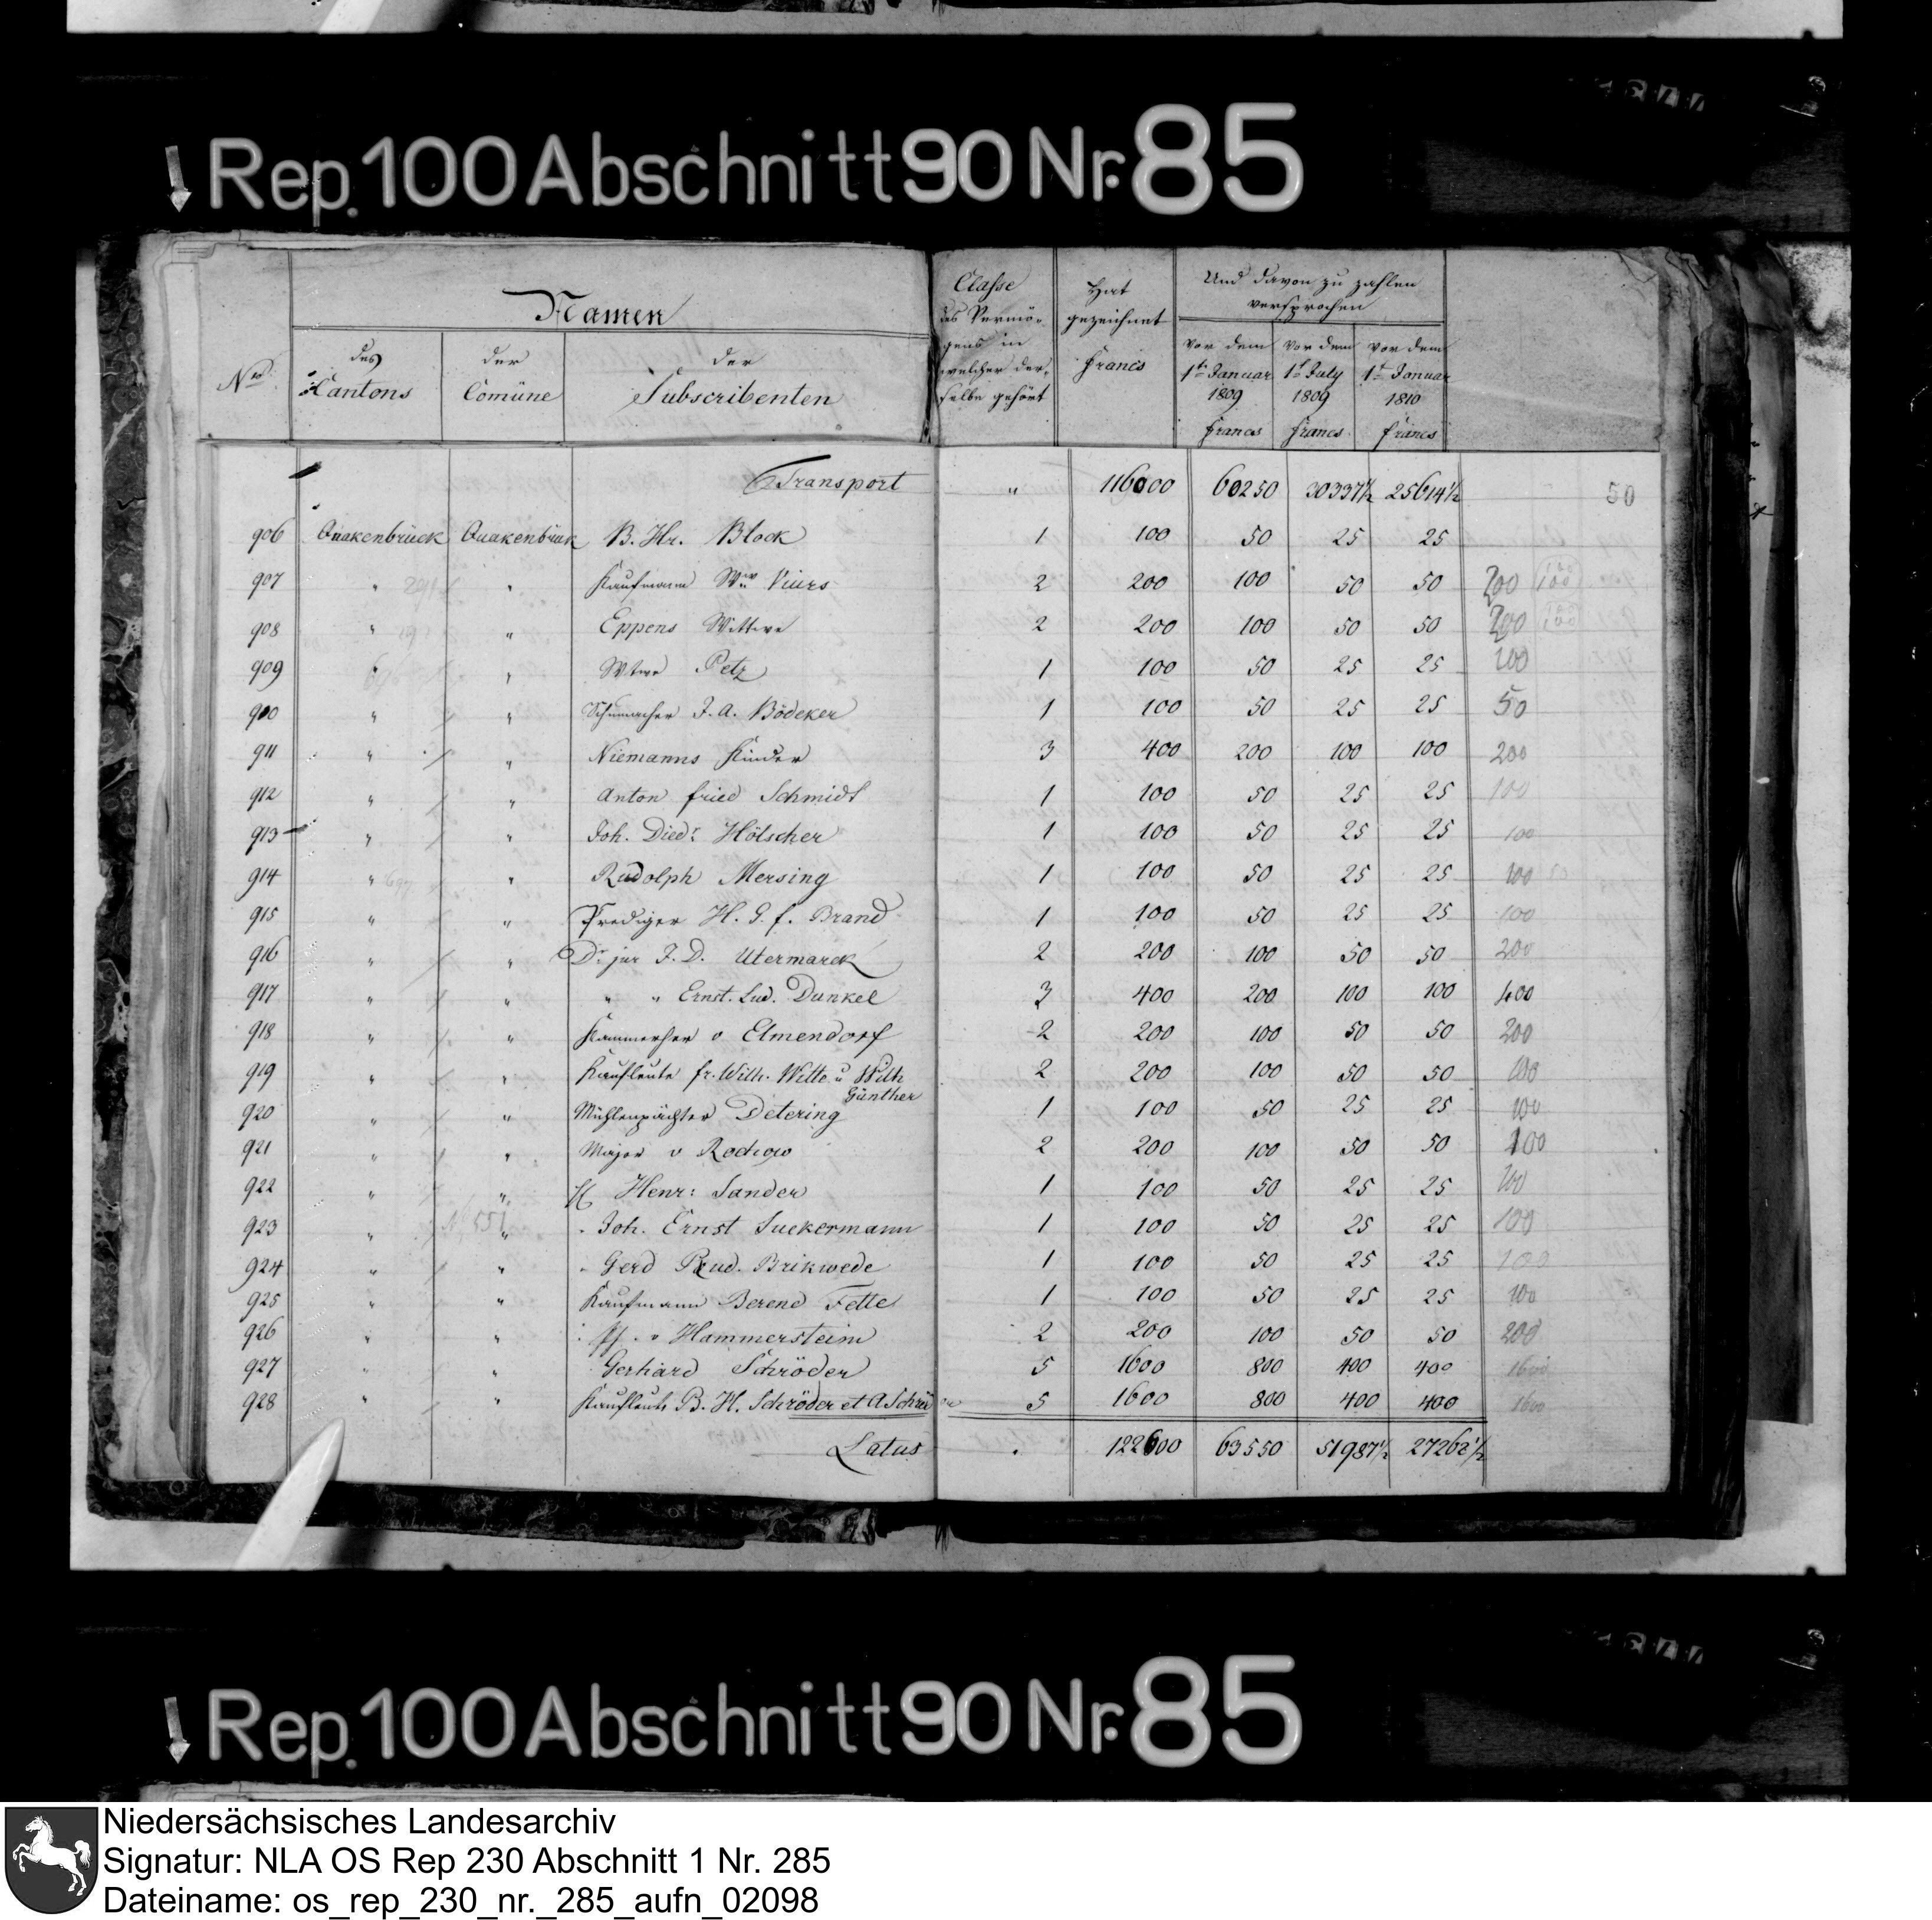 Rep. 100 Abschnitt 90 Nr. 85
Namen
Classe des Vermögens in welcher derselbe gehört
Hat gezeichnet Francs
Und davon zu zahlen versprochen
Nro
des Cantons
der Comüne
der Subscribenten
vor dem 1ten Januar 1809 Francs
vor dem 1t July 1809 Francs
vor dem 1t Januar 1810 Francs
Transport " 116000 60250 30337½ 25614½ 50
906 Quakenbrück Quakenbrük B. Hr. Block 1 100 50 25 25
907 " " Kaufmann Ww 2 200 100 50 50 200 100
908 " " Eppens Wittwe 2 200 100 50 50 200 100
909 " " Wtwe Petz 1 100 50 25 25 100
910 " " Schumacher J. A. Bödeker 1 100 50 25 25 50
911 " " Niemanns Kinder 3 400 200 100 100 200
912 " " Anton fried Schmidt 1 100 50 25 25 100
913 " " Joh. Diedr. Hölscher 1 100 50 25 25 100
914 " " Rudolph Mersing 1 100 50 25 25 100 50
915 " " Prediger H. G. f. Brand 1 100 50 25 25 100
916 " " Dr jur J. D. Utermarck 2 200 100 50 50 200
917 " " " " Ernst. Lud. Dunkel 3 400 200 100 100 400
918 " " Kammerher v Elmendorf 2 200 100 50 50 200
919 " " Kaufleute fr. Wilh. Witte u Wilh Günther 2 200 100 50 50 100
920 " " Mühlenpächter Detering 1 100 50 25 25 100
921 " " Major v Rochow 2 200 100 50 50 100
922 " " Henr: Sander 1 100 50 25 25 100
923 " " Joh. Ernst Suckermann 1 100 50 25 25 100
924 " " Gerd Rud. Brikwede 1 100 50 25 25 100
925 " " Kaufmann Berend Fette 1 100 50 25 25 100
926 " " v Hammerstein 2 200 100 50 50 200
927 " " Gerhard Schröder 5 1600 800 400 400 1600
928 " " Kaufleute B. H. Schröder et A Schrö 5 1600 800 400 400 1600
Latus . 122600 63550 31987½ 27262½
Rep. 100 Abschnitt 90 Nr. 85
Niedersächsisches Landesarchiv
Signatur: NLA OS Rep 230 Abschnitt 1 Nr. 285
Dateiname: os_rep_230_nr._285_aufn_02098